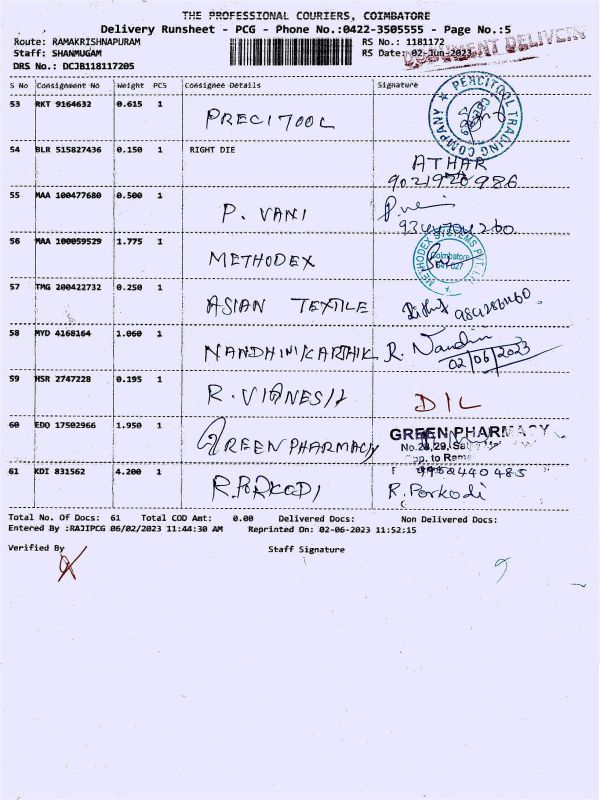 THE PROFESSIONAL COURIERS, COIMBATORE
Delivery Runsheet - PCG - Phone No.:0422-3505555 - Page No.:5
Route: RAMAKRISHNAPURAM RS No.: 1181172
Staff: SHANMUGAM RS Date: 02-Jun-2023
DOCUMENT DELIVERY
DRS No.: DCJB118117205
S No Consignment No Weight PCS Consignee Details Signature
53 RKT 9164632 0.615 1 PRECITOOL
PERCITOOL TRADING COMPANY
54 BLR 515827436 0.150 1 RIGHT DIE ATHAR
9021920986
55 MAA 100477680 0.500 1 P. VANI P.vani
56 MAA 100059529 1.775 1 METHODEX
METHODEX SYSTEMS PVT.
Coimbatore
57 TMG 200422732 0.250 1 ASIAN TEXTILE
58 MYD 4168164 1.060 1 NANDHINIKARTHIK R. Nandhu
02/06/2023
59 HSR 2747228 0.195 1 R. VIGNESH DIL
60 EDO 17502966 1.950 1 GREEN PHARMACY GREEN PHARMACY
No.28,29,
Opp. to
61 KDI 831562 4.200 1 R.PORKODI 9952440485
R. Porkodi
Total No. Of Docs: 61 Total COD Amt: 0.00 Delivered Docs: Non Delivered Docs:
Entered By :RAJIPCG 06/02/2023 11:44:30 AM Reprinted On: 02-06-2023 11:52:15
Verified By Staff Signature